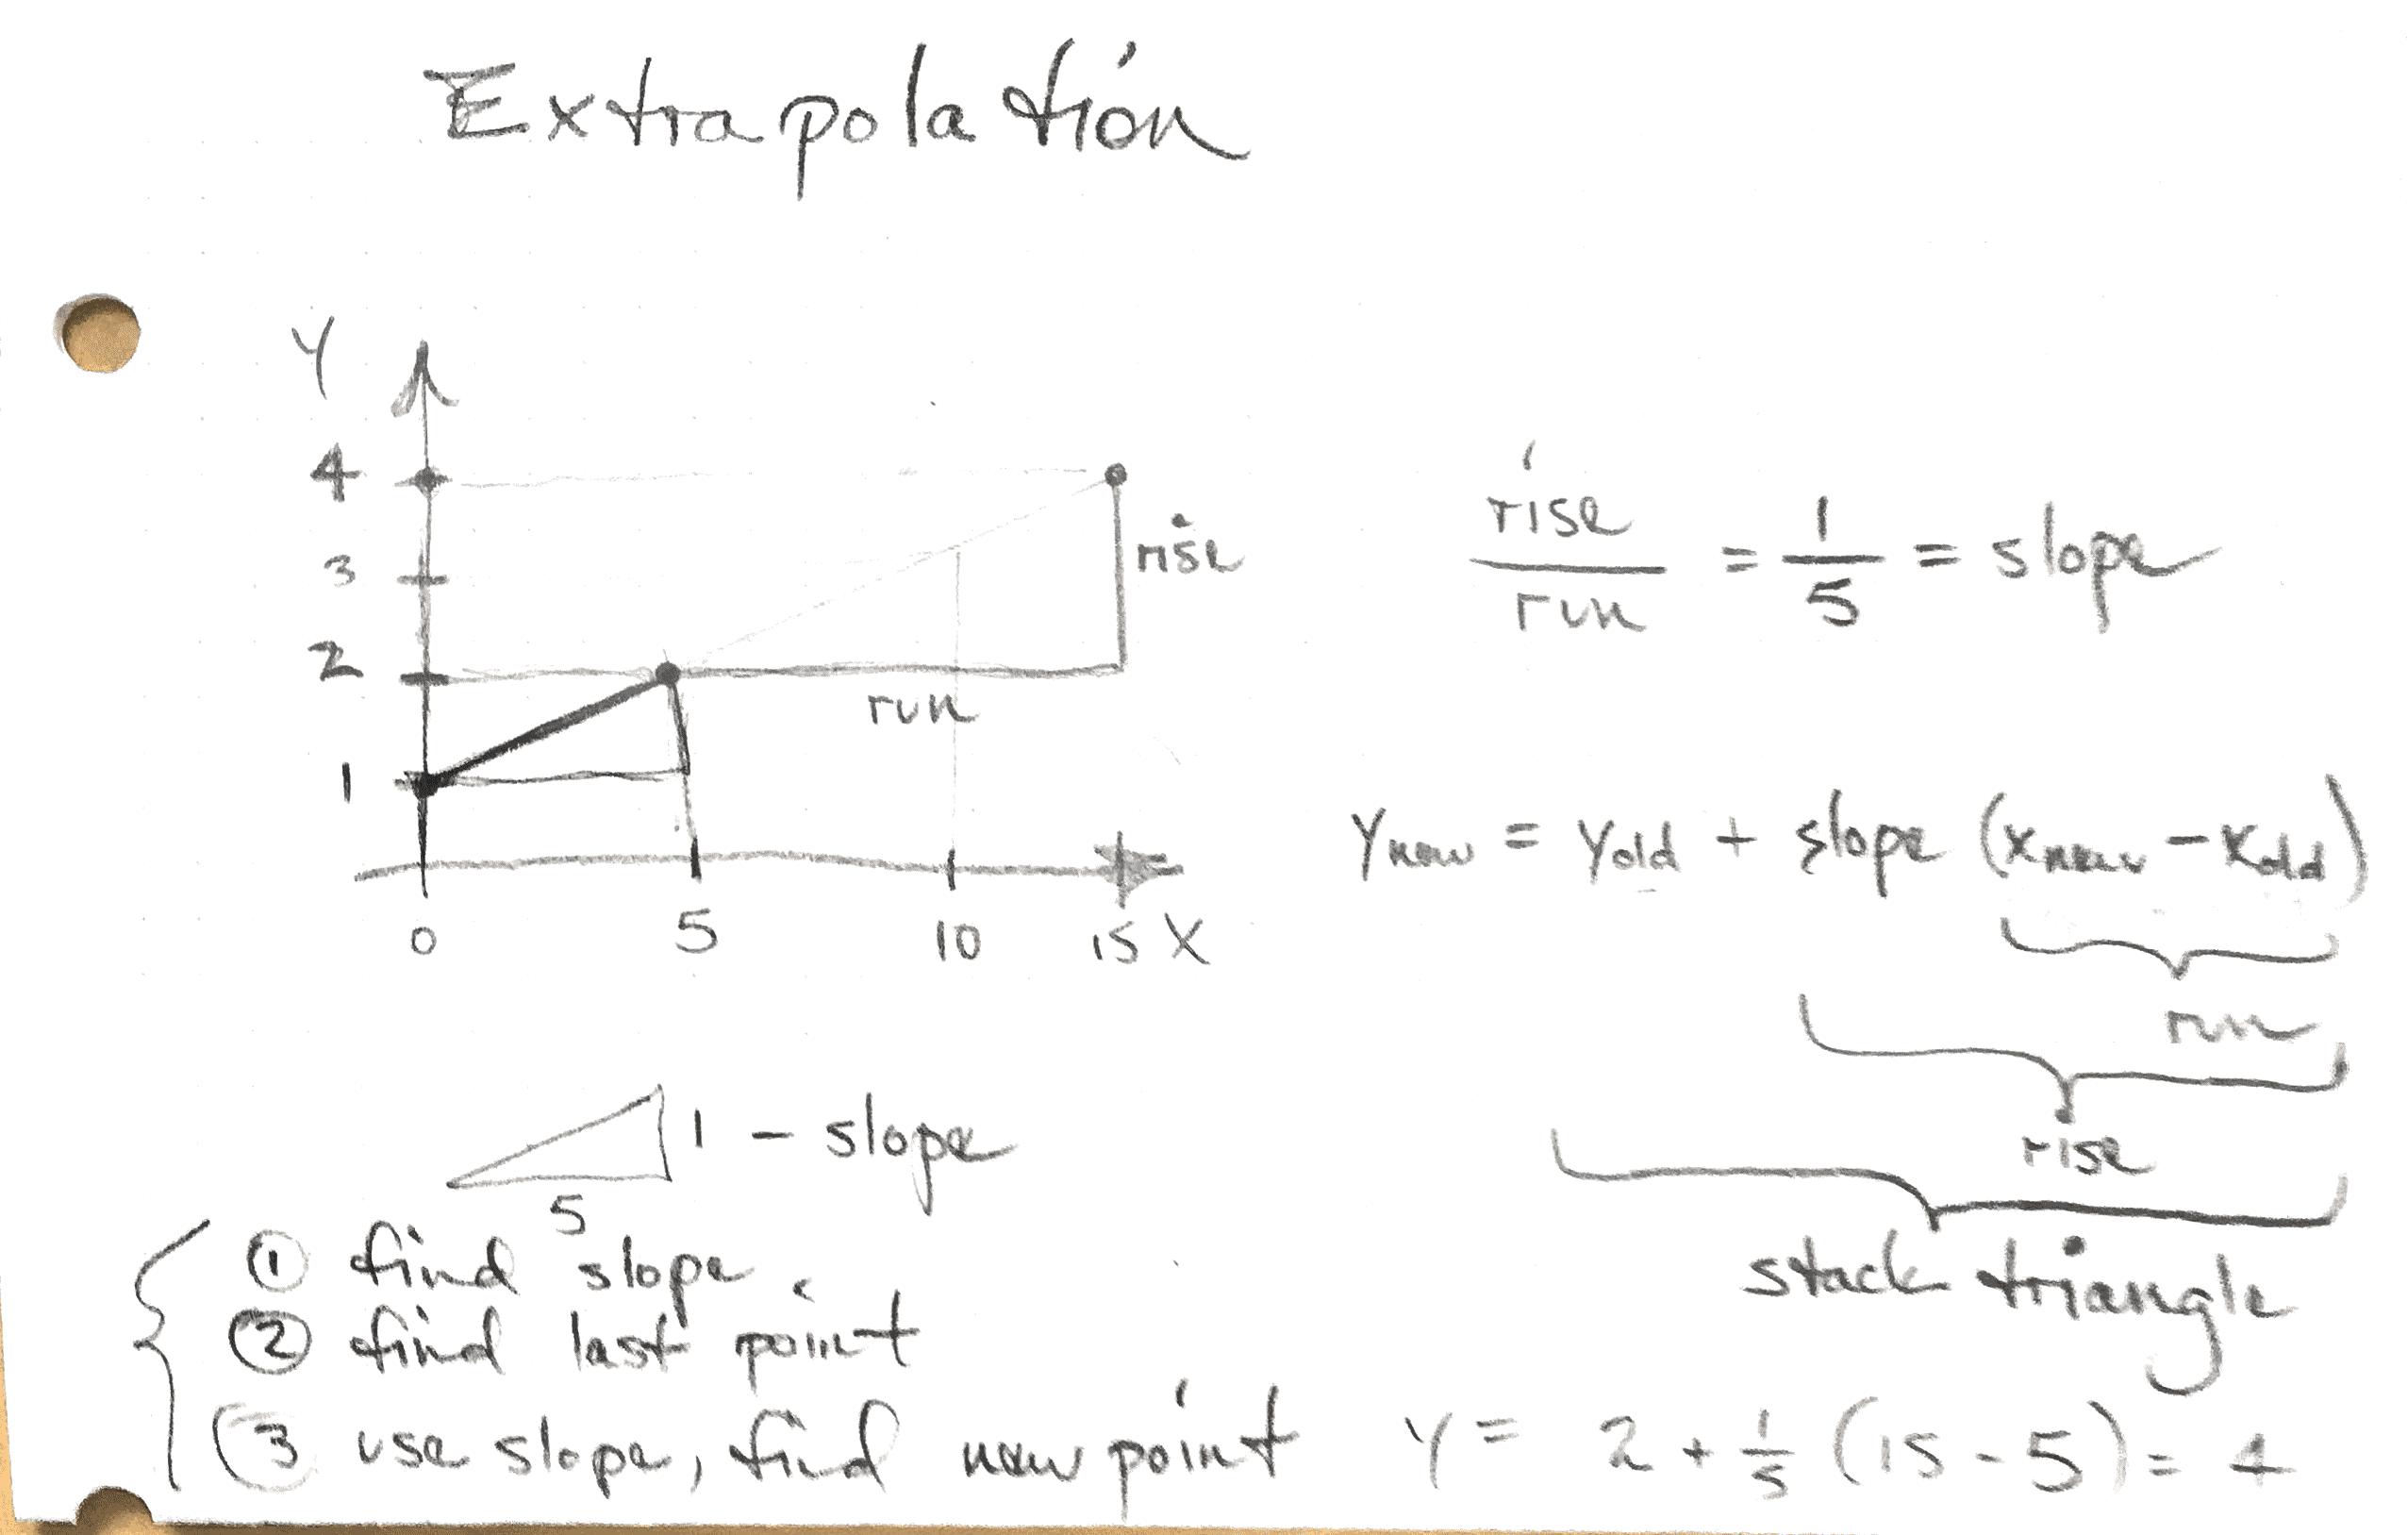 Extrapolation
Y
4
3
2
1
rise
run
0 5 10 15 X
rise
run
= 1/5 = slope
Ynew = Yold + slope (xnew - xold)
run
rise
stack triangle
1 - slope
5
① find slope
② find last point
③ use slope, find new point Y = 2 + 1/5 (15 - 5) = 4